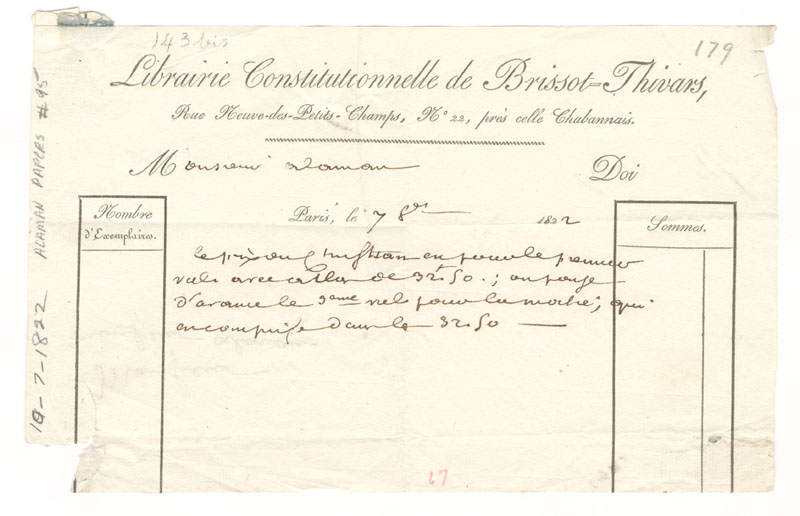 143 bis
179
Librairie Constitutionnelle de Brissot=Thivars,
Rue Neuve-des-Petits-Champs, N° 22, près celle Chabannais.
Monsieur alaman Doi
Paris, le 7 8bre 1822
Nombre
d'Exemplaires.
Sommes.
le prix en pour le premier
vol. avec atlas de 32f.50.; on paye
d'avance le 3eme vol. pour la moitié; qui
en compris dans le 32.50
67
10-7-1822 ALAMAN PAPERS #95